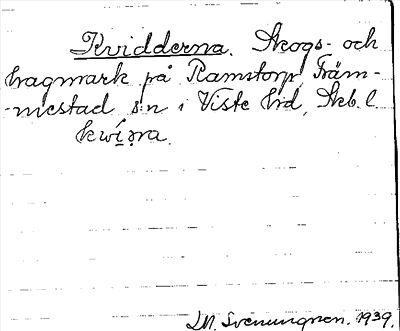 Kvidderna. Skogs- och
hagmark på Ramstorp, Främ-
-mestad s:n i Viste hd, Skb. l.
kwi̠ṛra.
M. Svenungsson. 1939.